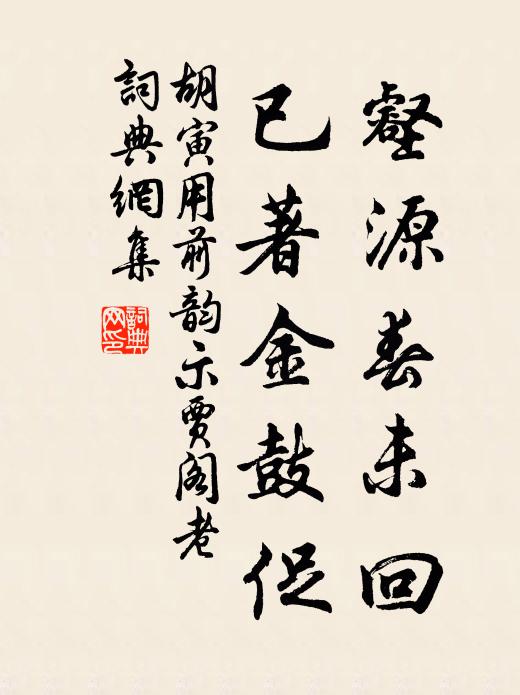 壑源春未回
已著金鼓促
胡寅用前韵示贾阁老
詞典網集
詞典網印